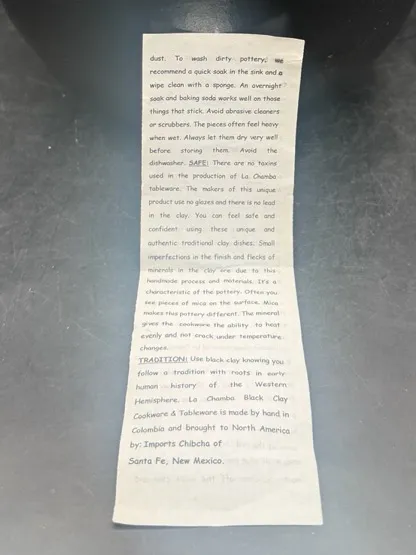 dust. To wash dirty pottery, we
recommend a quick soak in the sink and a
wipe clean with a sponge. An overnight
soak and baking soda works well on those
things that stick. Avoid abrasive cleaners
or scrubbers. The pieces often feel heavy
when wet. Always let them dry very well
before storing them. Avoid the
dishwasher. SAFE: There are no toxins
used in the production of La Chamba
tableware. The makers of this unique
product use no glazes and there is no lead
in the clay. You can feel safe and
confident using these unique and
authentic traditional clay dishes. Small
imperfections in the finish and flecks of
minerals in the clay are due to this
handmade process and materials. It's a
characteristic of the pottery. Often you
see pieces of mica on the surface. Mica
makes this pottery different. The mineral
gives the cookware the ability to heat
evenly and not crack under temperature
changes.
TRADITION: Use black clay knowing you
follow a tradition with roots in early
human history of the Western
Hemisphere. La Chamba Black Clay
Cookware & Tableware is made by hand in
Colombia and brought to North America
by: Imports Chibcha of
Santa Fe, New Mexico.